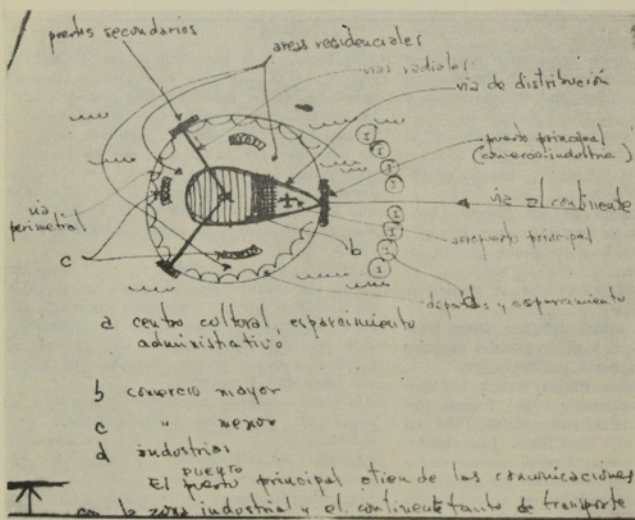 puertos secundarios
areas residenciales
vias radiales
via de distribución
puerto principal
(comercio-industria)
via al continente
via
perimetral
c
b
aeropuerto principal
d
deportes y esparcimiento
I
I
I
I
I
I
I
I
a centro cultural, esparcimiento
administrativo
b comercio mayor
c " menor
d industrias
puerto
El puerto principal atiende las comunicaciones
con la zona industrial y el continente tanto de transporte